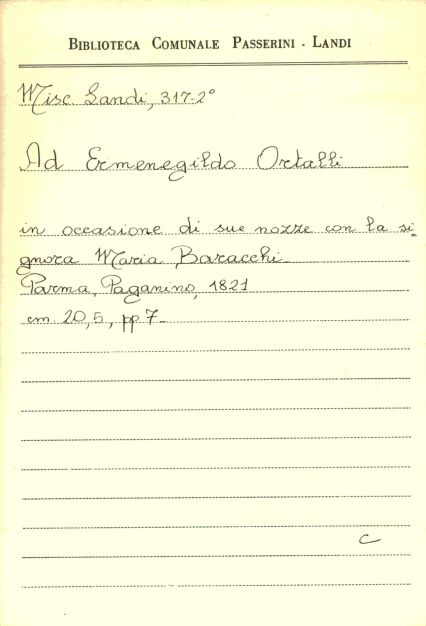 BIBLIOTECA COMUNALE PASSERINI - LANDI
Misc. Landi, 317-2°
Ad Ermenegildo Ortalli
in occasione di sue nozze con la si-
gnora Maria Baracchi.
Parma, Paganino, 1821
cm. 20,5, pp 7-
C